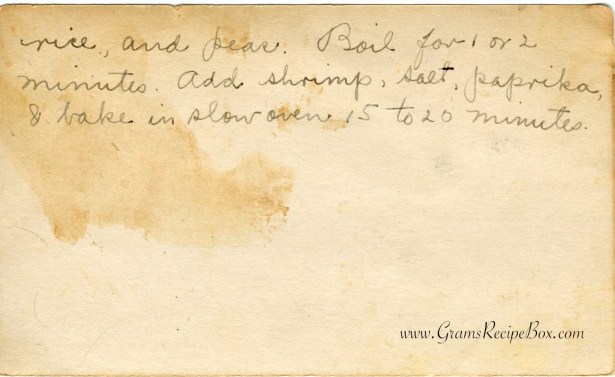 rice, and peas. Boil for 1 or 2
minutes. Add shrimp, salt, paprika,
& bake in slow oven 15 to 20 minutes.
www.GramsRecipeBox.com